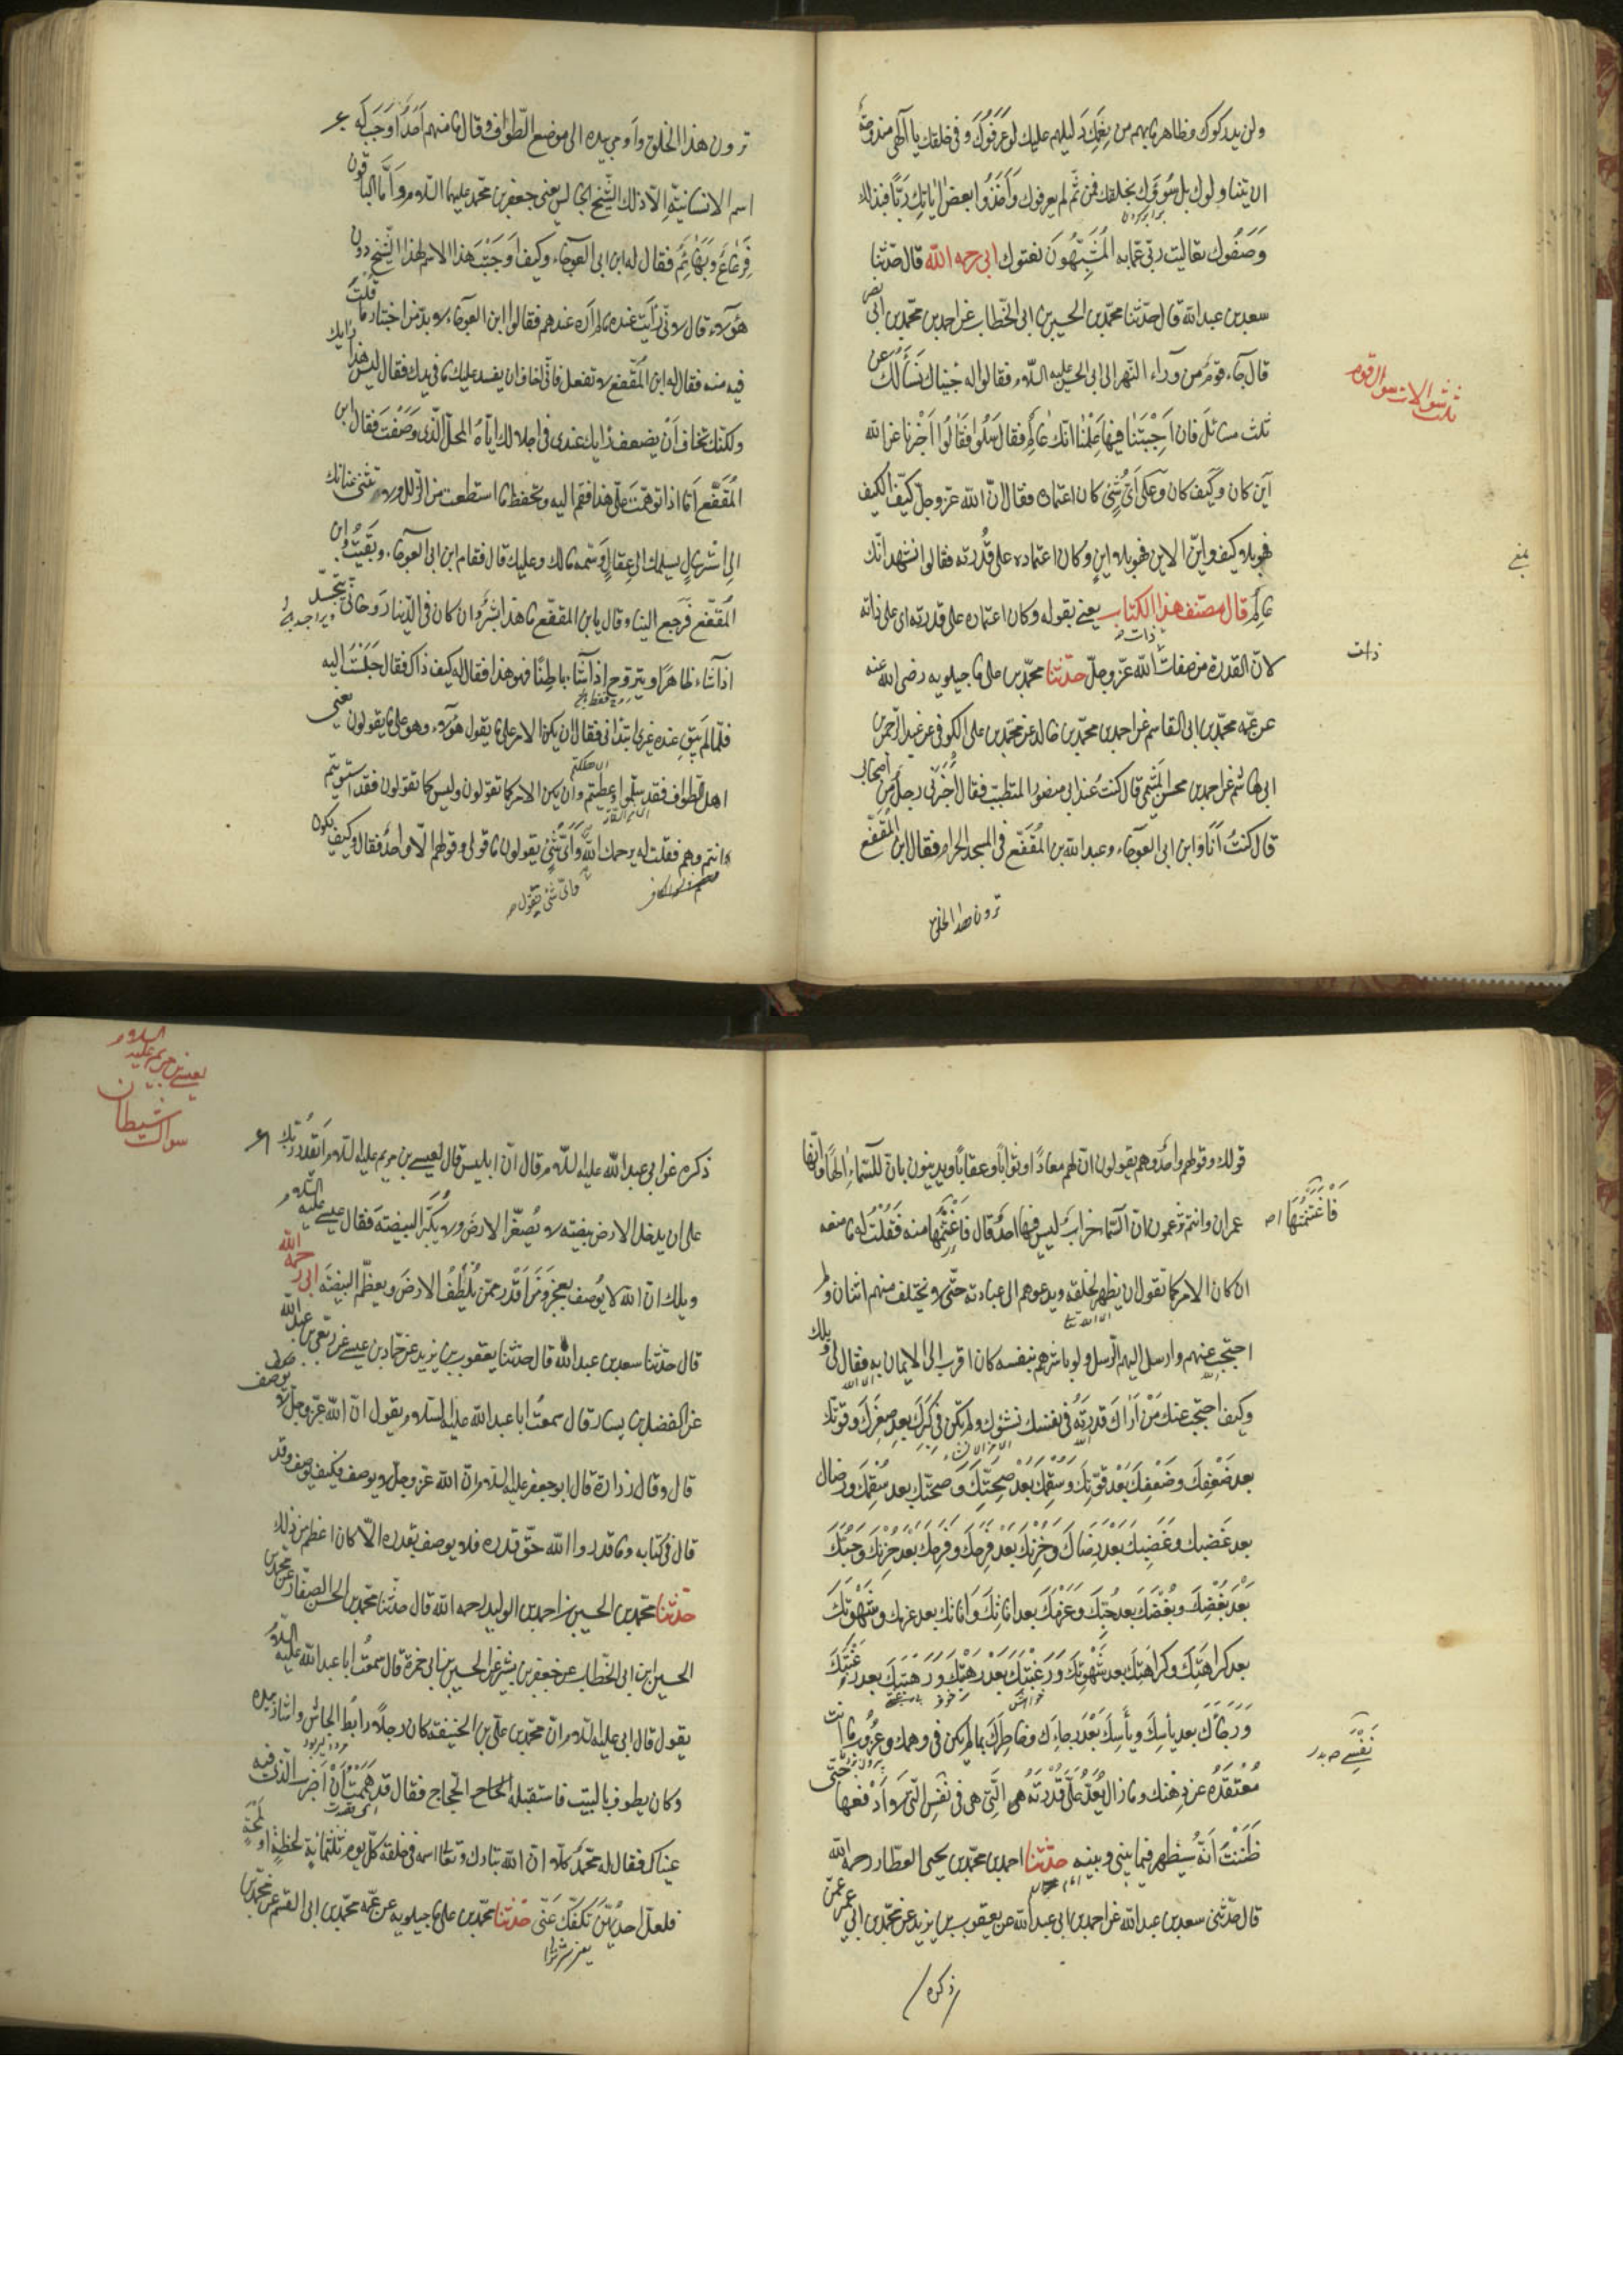 ولن يدركوك وظاهر ما بهم من نعمك دليلهم عليك لو عرفوك وفي خلقك يا الهي مندوحة
ان يتناولوك بل سووك بخلقك فمن ثم لم يعرفوك واتخذوا بعض اياتك ربا فبذلك
وصفوك تعاليت ربي عما به المشبهون نعتوك ابي رحمه الله قال حدثنا
سعد بن عبد الله قال حدثنا محمد بن الحسين بن ابي الخطاب عن احمد بن محمد بن ابي نصر
قال جاء قوم من وراء النهر الى ابي الحسن عليه السلام فقالوا له جئناك نسألك عن
ثلث سوالات سوال قوم
ثلث مسائل فان اجبتنا فيها علمنا انك عالم فقال سلوا فقالوا اخبرنا عن الله
اين كان وكيف كان وعلى اي شيء كان اعتماده فقال ان الله عز وجل كيف الكيف
فهو بلا كيف واين الاين فهو بلا اين وكان اعتماده على قدرته فقالوا نشهد انك
عالم قال مصنف هذا الكتاب يعني بقوله وكان اعتماده على قدرته اي على ذاته
ذات
لان القدرة من صفات الله عز وجل حدثنا محمد بن علي ماجيلويه رضي الله عنه
عن عمه محمد بن ابي القاسم عن احمد بن محمد بن خالد عن محمد بن علي الكوفي عن عبد الرحمن
ابي هاشم عن احمد بن محسن الميثمي قال كنت عند ابي منصور المتطبب فقال اخبرني رجل من اصحابي
قال كنت انا وابن ابي العوجاء وعبد الله بن المقفع في المسجد الحرام فقال ابن المقفع
ترون هذا الخلق
ترون هذا الخلق واومى بيده الى موضع الطواف وقال ما منهم احد اوجب له
اسم الانسانية الا ذلك الشيخ الجالس يعني جعفر بن محمد عليهما السلام واما الباقون
فرعاع وبهائم فقال له ابن ابي العوجاء وكيف اوجبت هذا الاسم لهذا الشيخ دون
هؤلاء قال لاني رأيت عنده ما لم اره عندهم فقال ابن ابي العوجاء لا بد من اختبار ما قلت
فيه منه فقال له ابن المقفع لا تفعل فاني اخاف ان يفسد عليك ما في يدك فقال ليس هذا رايك
ولكنك تخاف ان يضعف رايك عندي في احلالك اياه المحل الذي وصفت فقال ابن
المقفع اما اذا توهمت علي هذا فقم اليه وتحفظ ما استطعت من الزلل ولا تثني عنانك
الى استرسال يسلمك الى عقال وسمه مالك وعليك قال فقام ابن ابي العوجاء وبقيت وابن
المقفع فرجع الينا وقال يا بن المقفع ما هذا ببشر وان كان في الدنيا روحاني يتجسد
اذا شاء ظاهرا ويتروح اذا شاء باطنا فهو هذا فقال له كيف ذاك فقال جلست اليه
فلما لم يبق عنده غيري ابتداني فقال ان يكن الامر على ما يقول هؤلاء وهو على ما يقولون يعني
اهل الطواف فقد سلموا وعطبتم وان يكن الامر كما تقولون وليس كما تقولون فقد استويتم
وانتم وهم فقلت له يرحمك الله واي شيء يقولون ما قولي وقولهم الا واحد فقال وكيف يكون
قولك وقولهم واحد وهم يقولون ان لهم معادا وثوابا وعقابا ويدينون بان للسماء الها وانها
عمران وانتم تزعمون ان السماء خراب ليس فيها احد قال فاغتنمتها منه فقلت له ما منعه
فاغتنمتها
ان كان الامر كما تقول ان يظهر لخلقه ويدعوهم الى عبادته حتى لا يختلف منهم اثنان ولم
احتجب عنهم وارسل اليهم الرسل ولو باشرهم بنفسه كان اقرب الى الايمان به فقال لي ويلك
وكيف احتجب عنك من اراك قدرته في نفسك نشوك ولم تكن وكبرك بعد صغرك وقوتك
بعد ضعفك وضعفك بعد قوتك وسقمك بعد صحتك وصحتك بعد سقمك ورضاك
بعد غضبك وغضبك بعد رضاك وحزنك بعد فرحك وفرحك بعد حزنك وحبك
بعد بغضك وبغضك بعد حبك وعزمك بعد انائك وانائك بعد عزمك وشهوتك
بعد كراهتك وكراهتك بعد شهوتك ورغبتك بعد رهبتك ورهبتك بعد رغبتك
ورجائك بعد يأسك ويأسك بعد رجائك وخاطرك بما لم يكن في وهمك وعزوب ما انت
نفسي
معتقده عن ذهنك وما زال يعد علي قدرته هي التي هي في نفسي التي لا ادفعها حتى
ظننت انه سيظهر فيما بيني وبينه حدثنا احمد بن محمد بن يحيى العطار رحمه الله
قال حدثني سعد بن عبد الله عن احمد بن ابي عبد الله عن يعقوب بن يزيد عن محمد بن ابي عمير عمن
ذكره
سوالات شيطان
لعيسى بن مريم عليه السلام
ذكره عن ابي عبد الله عليه السلام قال ان ابليس قال لعيسى بن مريم عليه السلام أتقدر ربك
على ان يدخل الارض بيضة لا يصغر الارض ولا يكبر البيضة فقال عيسى عليه السلام
ويلك ان الله لا يوصف بعجز ومن اقدر ممن يلطف الارض ويعظم البيضة ابي رحمه الله
قال حدثنا سعد بن عبد الله قال حدثنا يعقوب بن يزيد عن حماد بن عيسى عن ربعي بن عبد الله
عن الفضيل بن يسار قال سمعت ابا عبد الله عليه السلام يقول ان الله عز وجل لا يوصف
قال وقال زرارة قال ابو جعفر عليه السلام ان الله عز وجل لا يوصف وكيف يوصف وقد
قال في كتابه وما قدروا الله حق قدره فلا يوصف بقدره الا كان اعظم من ذلك
حدثنا محمد بن الحسين بن احمد بن الوليد رحمه الله قال حدثنا محمد بن الحسن الصفار عن محمد بن
الحسين ابن ابي الخطاب عن جعفر بن بشير عن الحسين بن ابي حمزة قال سمعت ابا عبد الله عليه السلام
يقول قال ابي عليه السلام ان محمد بن علي بن الحنيفة كان رجلا رابط الجاش واشار بيده
وكان يطوف بالبيت فاستقبله الحجاج فقال قد هممت ان اضرب الذي فيه
عيناك فقال له محمد كلا ان الله تبارك وتعالى اسمه في خلقه كل يوم ثلثمائة لحظة او لمحة
فلعل احديهن تكفك عني حدثنا محمد بن علي ماجيلويه عن عمه محمد بن ابي القسم عن محمد بن